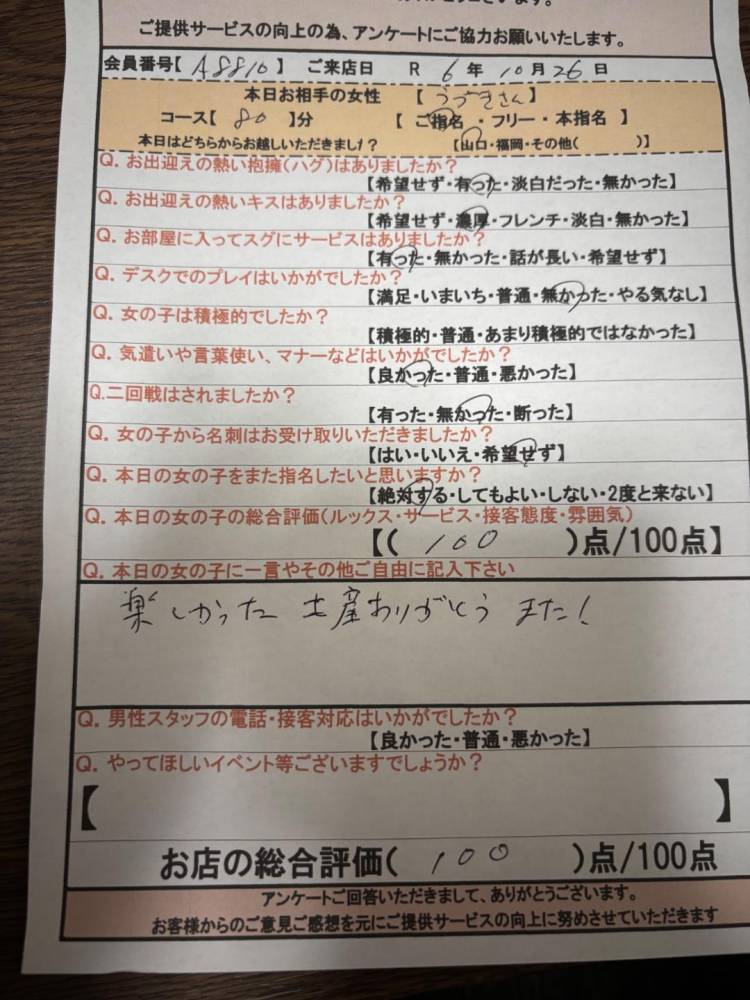 ご提供サービスの向上の為、アンケートにご協力お願いいたします。
会員番号【 A8810 】 ご来店日 R 6 年 10 月 26 日
本日お相手の女性 【 うづきさん 】
コース【 80 】分 【 ご指名 ・ フリー ・ 本指名 】
本日はどちらからお越しいただきました? 【山口・福岡・その他( )】
Q. お出迎えの熱い抱擁(ハグ)はありましたか?
【希望せず・有った・淡白だった・無かった】
Q. お出迎えの熱いキスはありましたか?
【希望せず・濃厚・フレンチ・淡白・無かった】
Q. お部屋に入ってスグにサービスはありましたか?
【有った・無かった・話が長い・希望せず】
Q. デスクでのプレイはいかがでしたか?
【満足・いまいち・普通・無かった・やる気なし】
Q. 女の子は積極的でしたか?
【積極的・普通・あまり積極的ではなかった】
Q. 気遣いや言葉使い、マナーなどはいかがでしたか?
【良かった・普通・悪かった】
Q.二回戦はされましたか?
【有った・無かった・断った】
Q. 女の子から名刺はお受け取りいただきましたか?
【はい・いいえ・希望せず】
Q. 本日の女の子をまた指名したいと思いますか?
【絶対する・してもよい・しない・2度と来ない】
Q. 本日の女の子の総合評価(ルックス・サービス・接客態度・雰囲気)
【( 100 )点/100点】
Q. 本日の女の子に一言やその他ご自由に記入下さい
楽しかった 土産ありがとう また!
Q. 男性スタッフの電話・接客対応はいかがでしたか?
【良かった・普通・悪かった】
Q. やってほしいイベント等ございますでしょうか?
【 】
お店の総合評価( 100 )点/100点
アンケートご回答いただきまして、ありがとうございます。
お客様からのご意見ご感想を元にご提供サービスの向上に努めさせていただきます